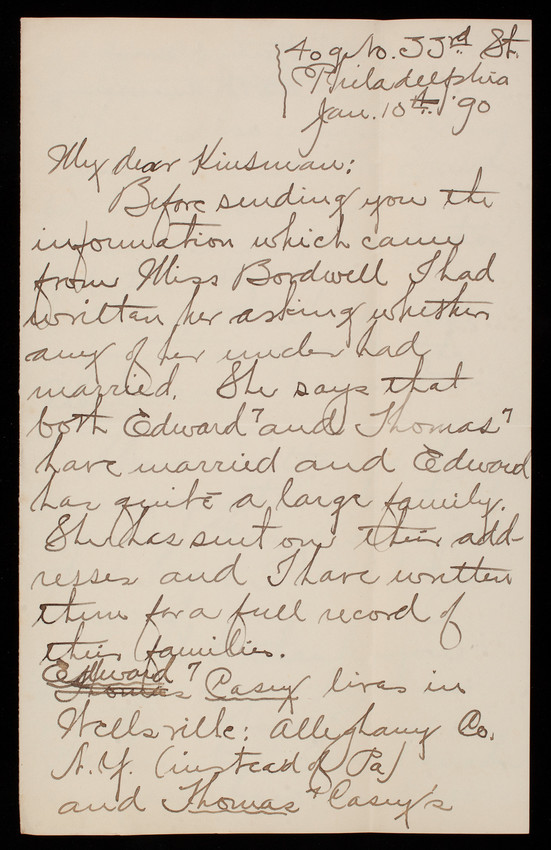 409 No. 33rd St.
Philadelphia
Jan. 10th '90
My dear Kinsman:
Before sending you the
information which came
from Miss Bordwell I had
written her asking whether
any of her uncles had
married. She says that
both Edward7 and Thomas7
have married and Edward
has quite a large family.
She has sent me their add-
resses and I have written
them for a full record of
their families.
Edward7
Thomas Casey lives in
Wellsville; Alleghany Co.
N.Y. (instead of Pa)
and Thomas7 Casey's